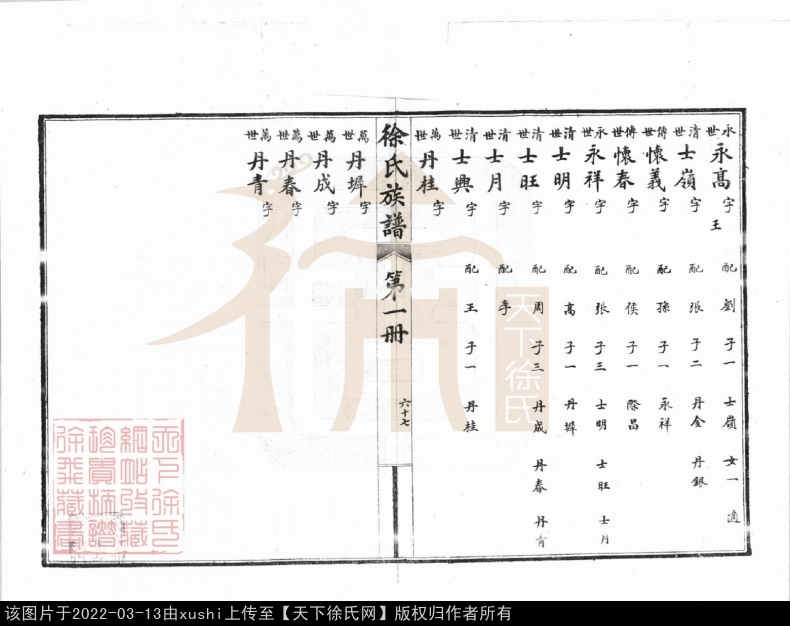 永世 永高 字 王 配 劉 子一 士嶺 女一 適
清世 士嶺 字 配 張 子二 丹金 丹銀
傅世 懷義 字 配 孫 子一 永祥
傅世 懷春 字 配 侯 子一 際昌
永世 永祥 字 配 張 子三 士明 士旺 士月
清世 士明 字 配 高 子一 丹墀
清世 士旺 字 配 周 子三 丹成 丹春 丹青
清世 士月 字 配 李
清世 士興 字 配 王 子一 丹桂
萬世 丹桂 字
徐氏族譜 第一冊 六十七
萬世 丹墀 字
萬世 丹成 字
萬世 丹春 字
萬世 丹青 字
天下徐氏
天下徐氏
網站收藏
珍貴族譜
徐飛藏書
该图片于2022-03-13由xushi上传至【天下徐氏网】版权归作者所有